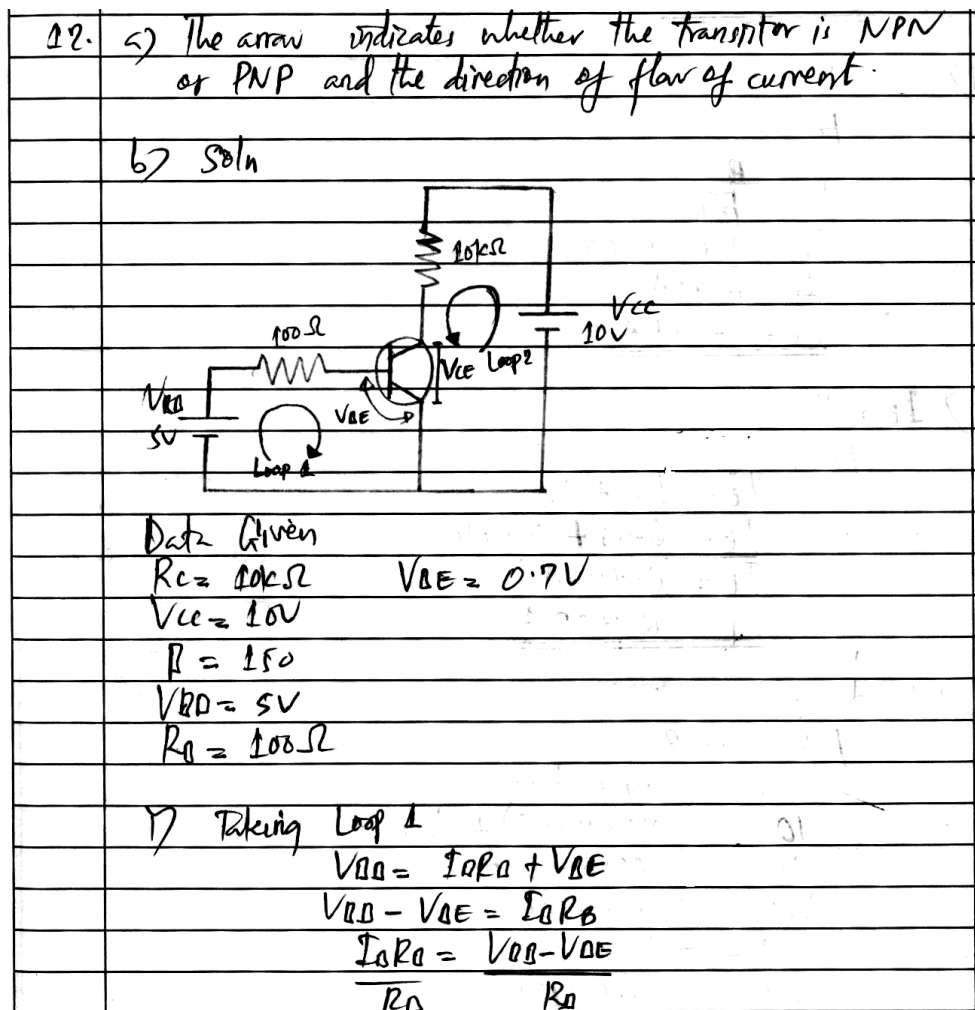 12. a) The arrow indicates whether the transistor is NPN
or PNP and the direction of flow of current.
b) Soln
10kΩ
VCC
10V
100Ω
VCE Loop 2
VBB
5V
VBE
Loop 1
Data Given
RC = 10kΩ VBE = 0.7V
VCC = 10V
β = 150
VBB = 5V
RB = 100Ω
i) Taking Loop 1
VBB = IBRB + VBE
VBB - VBE = IBRB
IBRB = VBB - VBE
RB RB